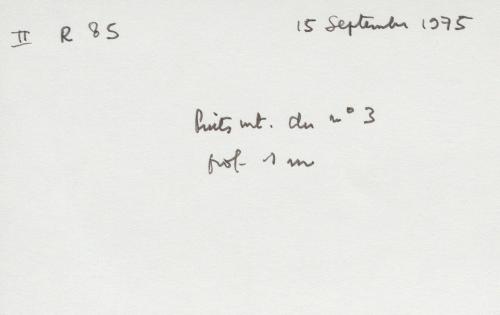 II R 85 15 September 1975
Puits int. du n° 3
prof. 1 m